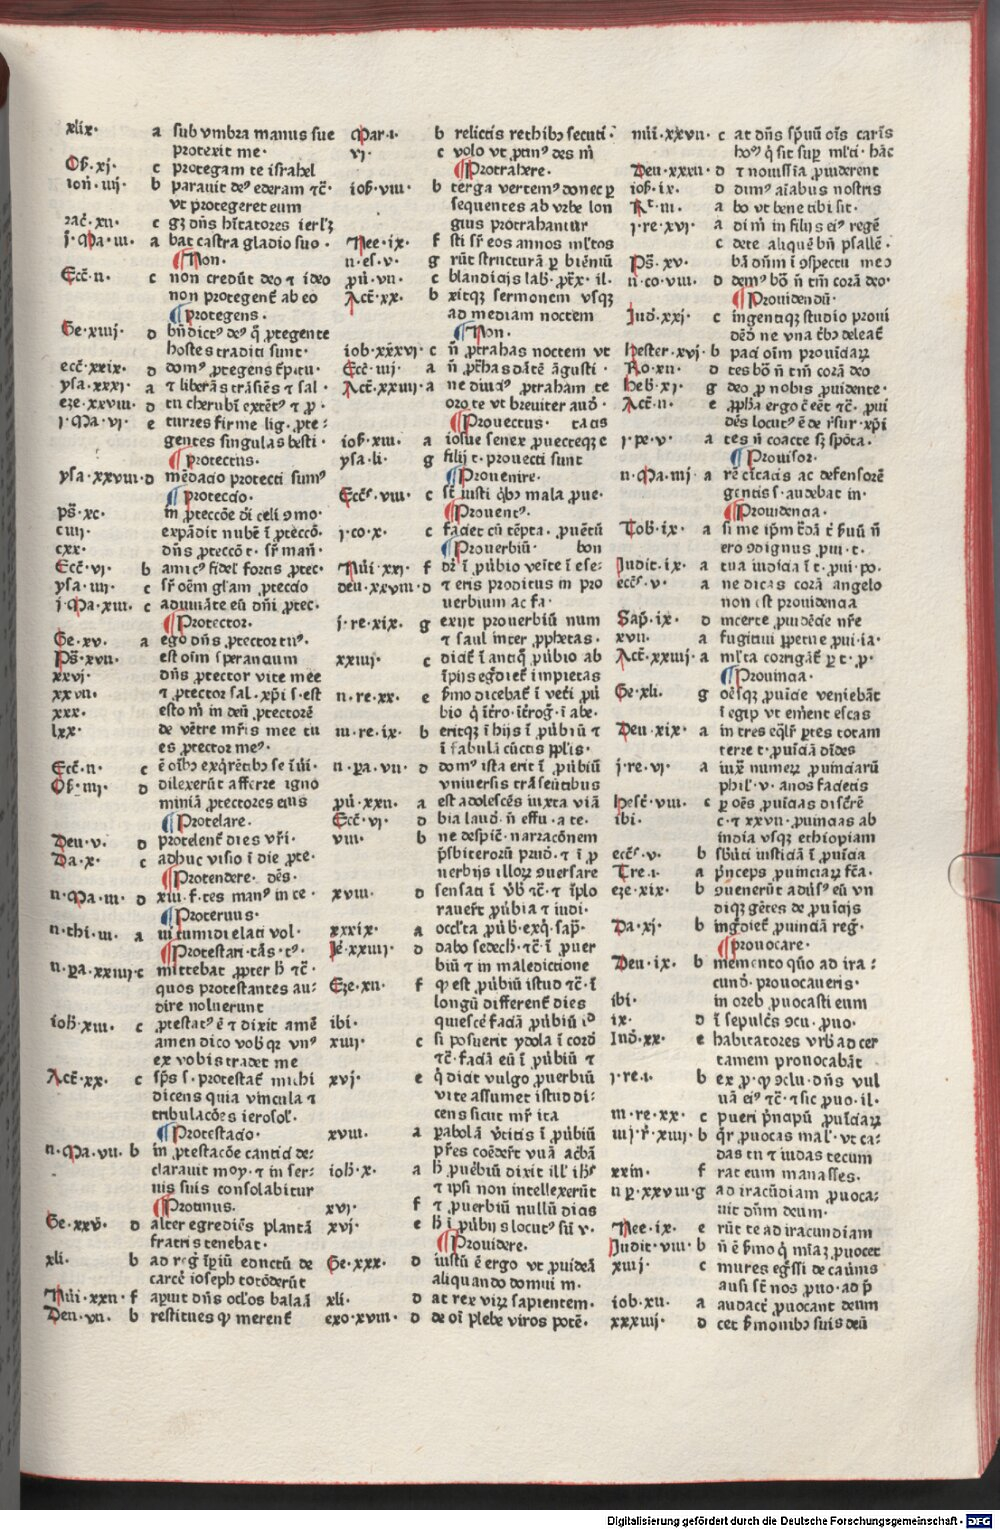 xlix· a sub vmbra manus sue
protexit me·
Oß·xj· c protegam te israhel
ion̄·iiij· b parauit deꝰ ederam ⁊c̄·
vt protegeret eum
zac̄·xii· c gꝫ dn̄s hītatores ierlꝫ
j·Ma·iii· a bat castra gladio suo·
¶Non·
Ecc̄·ii· c non credūt deo ⁊ ideo
non protegent̄ ab eo
¶protegens·
Ge·xiiij· d bn̄dictꝰ deꝰ q̄ ꝓtegente
hostes traditi sunt·
ecc̄·xxix· d domꝰ ꝓtegens
ysa·xxxj· a ⁊ liberās trāsiēs ⁊ sal·
eze·xxviii· d tu cherubī extētꝰ ⁊ ꝓ·
j·Ma·vj· e turres firme lig·ꝓte⸗
gentes singulas besti·
¶protectus·
ysa·xxviii·d mēdacio protecti sumꝰ
¶protectio·
ps̄·xc· in ꝓteccōe dī celi ꝯmo·
ciiij· expādit nubē ī ꝓteccō·
cxx· dn̄s ꝓteccō t· sr̄ man̄·
Ecc̄·vj· b amicꝰ fidel fortis ꝓtec·
ysa·iiij· c sr̄ oēm gl̄am ꝓtectio
j·Ma·xiii· c adiuuāte eū dn̄i ꝓtec·
¶Protector·
Ge·xv· a ego dn̄s ꝓtector tuꝰ·
Ps̄·xvii· est oīm sperantium
xxvj· dn̄s ꝓtector vite mee
xxvii· ⁊ ꝓtector sal·xp̄i s·est
xxx· esto m̄ in deū ꝓtectorē
lxx· de vētre mr̄is mee tu
es ꝓtector meꝰ·
Ecc̄·ii· c ē oībꝰ exq̄rētibꝰ se ī
Oß·iiij· d dilexerūt afferre igno
miniā ꝓtectores eius
¶Protelare·
Deu·v· d protelent̄ dies vr̄i·
Da·x· c adhuc visio ī die ꝓte·
¶Protendere· dēs·
ii·Ma·iii· d xiii·f·tes manꝰ in ce·
¶Proteruus·
ii·thi·iii· a ui tumidi elati vol·
¶Protestari·tās·tꝰ·
ii·pa·xxiiij·c mittebat ꝓpter h̄ ⁊c̄·
quos protestantes au⸗
dire noluerunt
ioh̄·xiii· c ꝓtestatꝰ ē ⁊ dixit amē
amen dico vob̄ qꝛ vnꝰ
ex vobis tradet me
Act̄·xx· c sp̄s s·protestat̄ michi
dicens quia vincula ⁊
tribulacōes ierosol·
¶Protestacio·
ii·Ma·vii· b in ꝓtestacōe cantici de⸗
clarauit moy·⁊ in ser⸗
uis suis consolabitur
¶Protinus·
Ge·xxv̄· d alter egrediēs plantā
fratris tenebat·
xli· b ad reḡ īpiū eductū de
carcē ioseph totōderūt
Nūi·xxii· f aꝑuit dn̄s ocl̄os balaā
Deu·vii· b restitues ꝙ merent̄
Mar·i· b relictis rethibꝰ secuti·
vj· c volo vt ꝓtinꝰ des m̄
¶Protrahere·
ioß·viii· b terga vertemꝰ donec ꝑ
sequentes ab vrbe lon
gius protrahantur
Nee·ix· f sti sr̄ eos annos ml̄tos
ii·es·v· g rūt structurā ꝑ bienniū
pū·vii· c blandicijs lab·
Act̄·xx· b xitqꝫ sermonem vsqꝫ
ad mediam noctem
¶Non·
iob·xxxvj· c n̄ ꝓtrahas noctem vt
Ecc̄·iiij· a n̄ ꝓt̄has dātē āgusti·
Act̄·xxiiij·a ne diuciꝰ ꝓtraham te
oro te vt breuiter aud̄·
¶Prouectus· ta tis
ioß·xiii· a iosue senex ꝓuecteqꝫ e
ysa·li· g filij t·prouecti sunt
¶Prouenire·
Ecc̄s·viii· c st̄ iusti q̄bꝰ mala ꝓue·
¶Prouentꝰ·
j·co·x· c faciet cū tēpta·ꝓuētū
¶Prouerbiū· bon
Nūi·xxj· f dr̄ ī ꝓūbio veīte ī ese⸗
deu·xxviii·d ⁊ eris proditus in pro
uerbium ac fa·
j·re·xix· g exijt prouerbiū num
⁊ saul inter ꝓphetas·
xxiiij· c dicit̄ ī antiq̄ ꝓūbio ab
īpijs eḡdiet̄ impietas
ii·re·xx· e ẜmo dicebat̄ ī veti ꝓū
bio q̄ īt̄ro·īt̄roḡ·ī abe·
iii·re·ix· b eritqꝫ ī hijs ī ꝓūbiū ⁊
ī fabulā cūctis ppl̄is·
ii·pa·vii· d domꝰ ista erit ī ꝓūbiū
vniuersis trāseūtibus
pū·xxii· a est adolescēs iuxta viā
Ecc̄·vj· d bia laud̄·n̄ effu·a te·
viii· b ne despic̄·narracōnem
p̄sbiterorū prud̄·⁊ ī ꝓ
uerbijs illoꝝ ꝯuersare
xviii· d sensati ī v̄b̄ ⁊c̄·⁊ īplo
rauer̄t ꝓūbia ⁊ iudi·
xxxix· a occl̄ta ꝓūb·exq̄·sap̄·
Ie·xxiiij· d dabo sedech̄·⁊c̄·ī ꝓuer
biū ⁊ in maledictione
Eze·xii· f ꝙ est ꝓūbiū istud ⁊c̄·ī
longū different̄ dies
ibi· quiescē faciā ꝓūbiū
xiiij· c si posuerit ydola ī cord̄
⁊c̄·faciā eū ī ꝓūbiū ⁊
xvj· e q̄ dicit vulgo ꝓuerbiū
vite assumet istud di⸗
cens sicut mr̄ ita
xviii· a ꝑabolā v̄titis ī ꝓūbiū
pr̄es coēder̄t vuā acībā
ioh̄·x· a h̄ ꝓuēbiū dixit ill' ih̄s
⁊ ipsi non intellexerūt
xvj· f ⁊ ꝓuerbiū nullū dicis
xvj· e h̄ ī ꝓūbijs locutꝰ sū v·
¶Prouidere·
Ge·xxx· d iustū ē ergo vt ꝓuideā
aliquando domui m·
xli· d at rex viꝝ sapientem·
exo·xviii· d de oī plebe viros potē·
nūi·xxvii· c at dn̄s sp̄uū oīs carīs
hoꝰ q̄ sit suꝑ ml̄ti·hāc
Deu·xxxii· d ⁊ nouissīa ꝓuiderent
ioß·ix· d dimꝰ aīabus nostris
Rt·iii· a bo vt bene tibi sit·
j·re·xvj· a di m̄ in filijs eiꝰ regē
c dete aliquē bn̄ psallē·
Ps̄·xv· bā dn̄m ī ꝯspectu meo
ii·co·viii· d demꝰ bō n̄ tm̄ corā deo·
¶Prouidendū·
Jud̄·xxj· c ingentiqꝫ studio proui
dēd̄ ne vna t̄bꝰ deleat̄
hester·xvj·b paci oīm prouidaꝝ
Ro·xii· d tes bō n̄ tm̄ corā deo
heb̄·xj· g deo ꝓ nobis ꝓuidente·
Act̄·ii· e ꝓph̄a ergo c̄ eēt ⁊c̄·ꝓui
dēs locutꝰ ē de r̄sur·xp̄i
j·pe·v· a tes n̄ coacte sꝫ spōta·
¶Prouisor·
ii·Ma·iiij· a rē c̄itatis ac defensorē
gentis s·audebat in·
¶Prouidencia·
Tob̄·ix· a si me ip̄m t̄dā t̄ ẜuū n̄
ero ꝯdignus ꝓui·t·
Judit·ix· a tua iudicia ī t·ꝓui·po·
ecc̄s·v· a ne dicas corā angelo
non est prouidencia
Sap̄·ix· d incerte ꝓuidēcie nr̄e
xvii· a fugitiui ꝑpetue ꝓui·ia·
Act̄·xxiiij· a ml̄ta corrigāt̄ ꝑ t·ꝓ·
¶Prouincia·
Ge·xli· g oēsqꝫ ꝓuīcie veniebāt
ī egip vt emēent escas
Deu·xix· a in tres eqlr̄ ꝑtes totam
terre t·ꝓuīciā dīdes
j·re·vj· a iuxᷓ numeꝝ ꝓuinciarū
phil'·v·anos facietis
hest̄·viii· c ꝑ oēs ꝓuīcias discr̄rē
ibi· c·⁊ xxvii·ꝓuincias ab
india vsqꝫ ethiopiam
ecc̄s·v· b sb̄uti iusticiā ī ꝓuīcia
Tre·i· a p̄nceps ꝓuinciaꝝ fc̄a·
eze·xix· b ꝯuenerūt aduꝰsꝰ eū vn
diqꝫ gētes de ꝓuīcijs
Da·xj· b inḡdiet̄ ꝓuinciā reḡ·
¶prouocare·
Deu·ix· b memento qūo ad ira⸗
cund̄·prouocaueris·
ibi· in oreb ꝓuocasti eum
ix· d ī sepulc̄s ꝯcu·ꝓuo·
Iud̄·xx· e habitatores vrb̄ ad cer
tamem prouocabāt
j·re·i· b ex ꝓ·ꝙ ꝯclu·dn̄s vul
uā eiꝰ ⁊c̄·⁊ sic ꝓuo·il·
iii·re·xx· c pueri p̄ncipū ꝓuīciaꝝ
iiij·r̄·xxiij· b q̄r ꝓuocas mal'·vt ca⸗
das tu ⁊ iudas tecum
xxiii· f rat eum manasses·
ii p·xxviii·g ad iracūdiam ꝓuoca⸗
uit dn̄m deum·
Nee·ix· e rūt te ad iracundiam
Judit·viii· b n̄ ē ẜmo q̄ mīaꝫ ꝓuocet
xiiij· c mures eḡssi de cauīns
ausi st̄ nos ꝓuo·ad p̄
iob·xii· a audact̄ ꝓuocant deum
xxxiiij· d cet ẜmonibꝰ suis deū
Digitalisierung gefördert durch die Deutsche Forschungsgemeinschaft - DFG